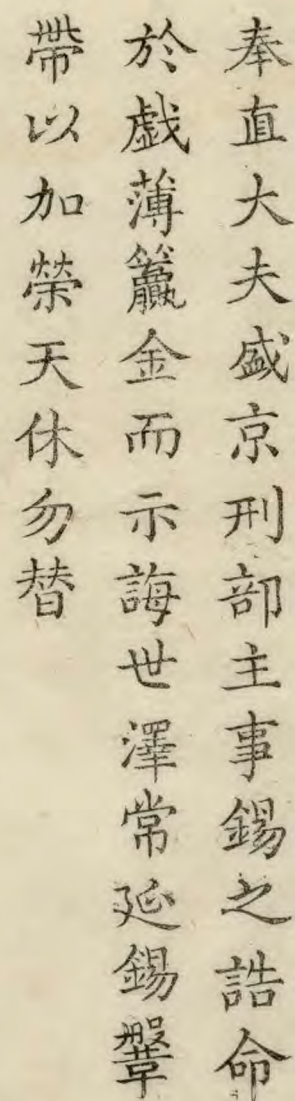 奉直大夫盛京刑部主事錫之誥命
於戲薄籯金而示誨世澤常延錫鞶
帶以加榮天休勿替